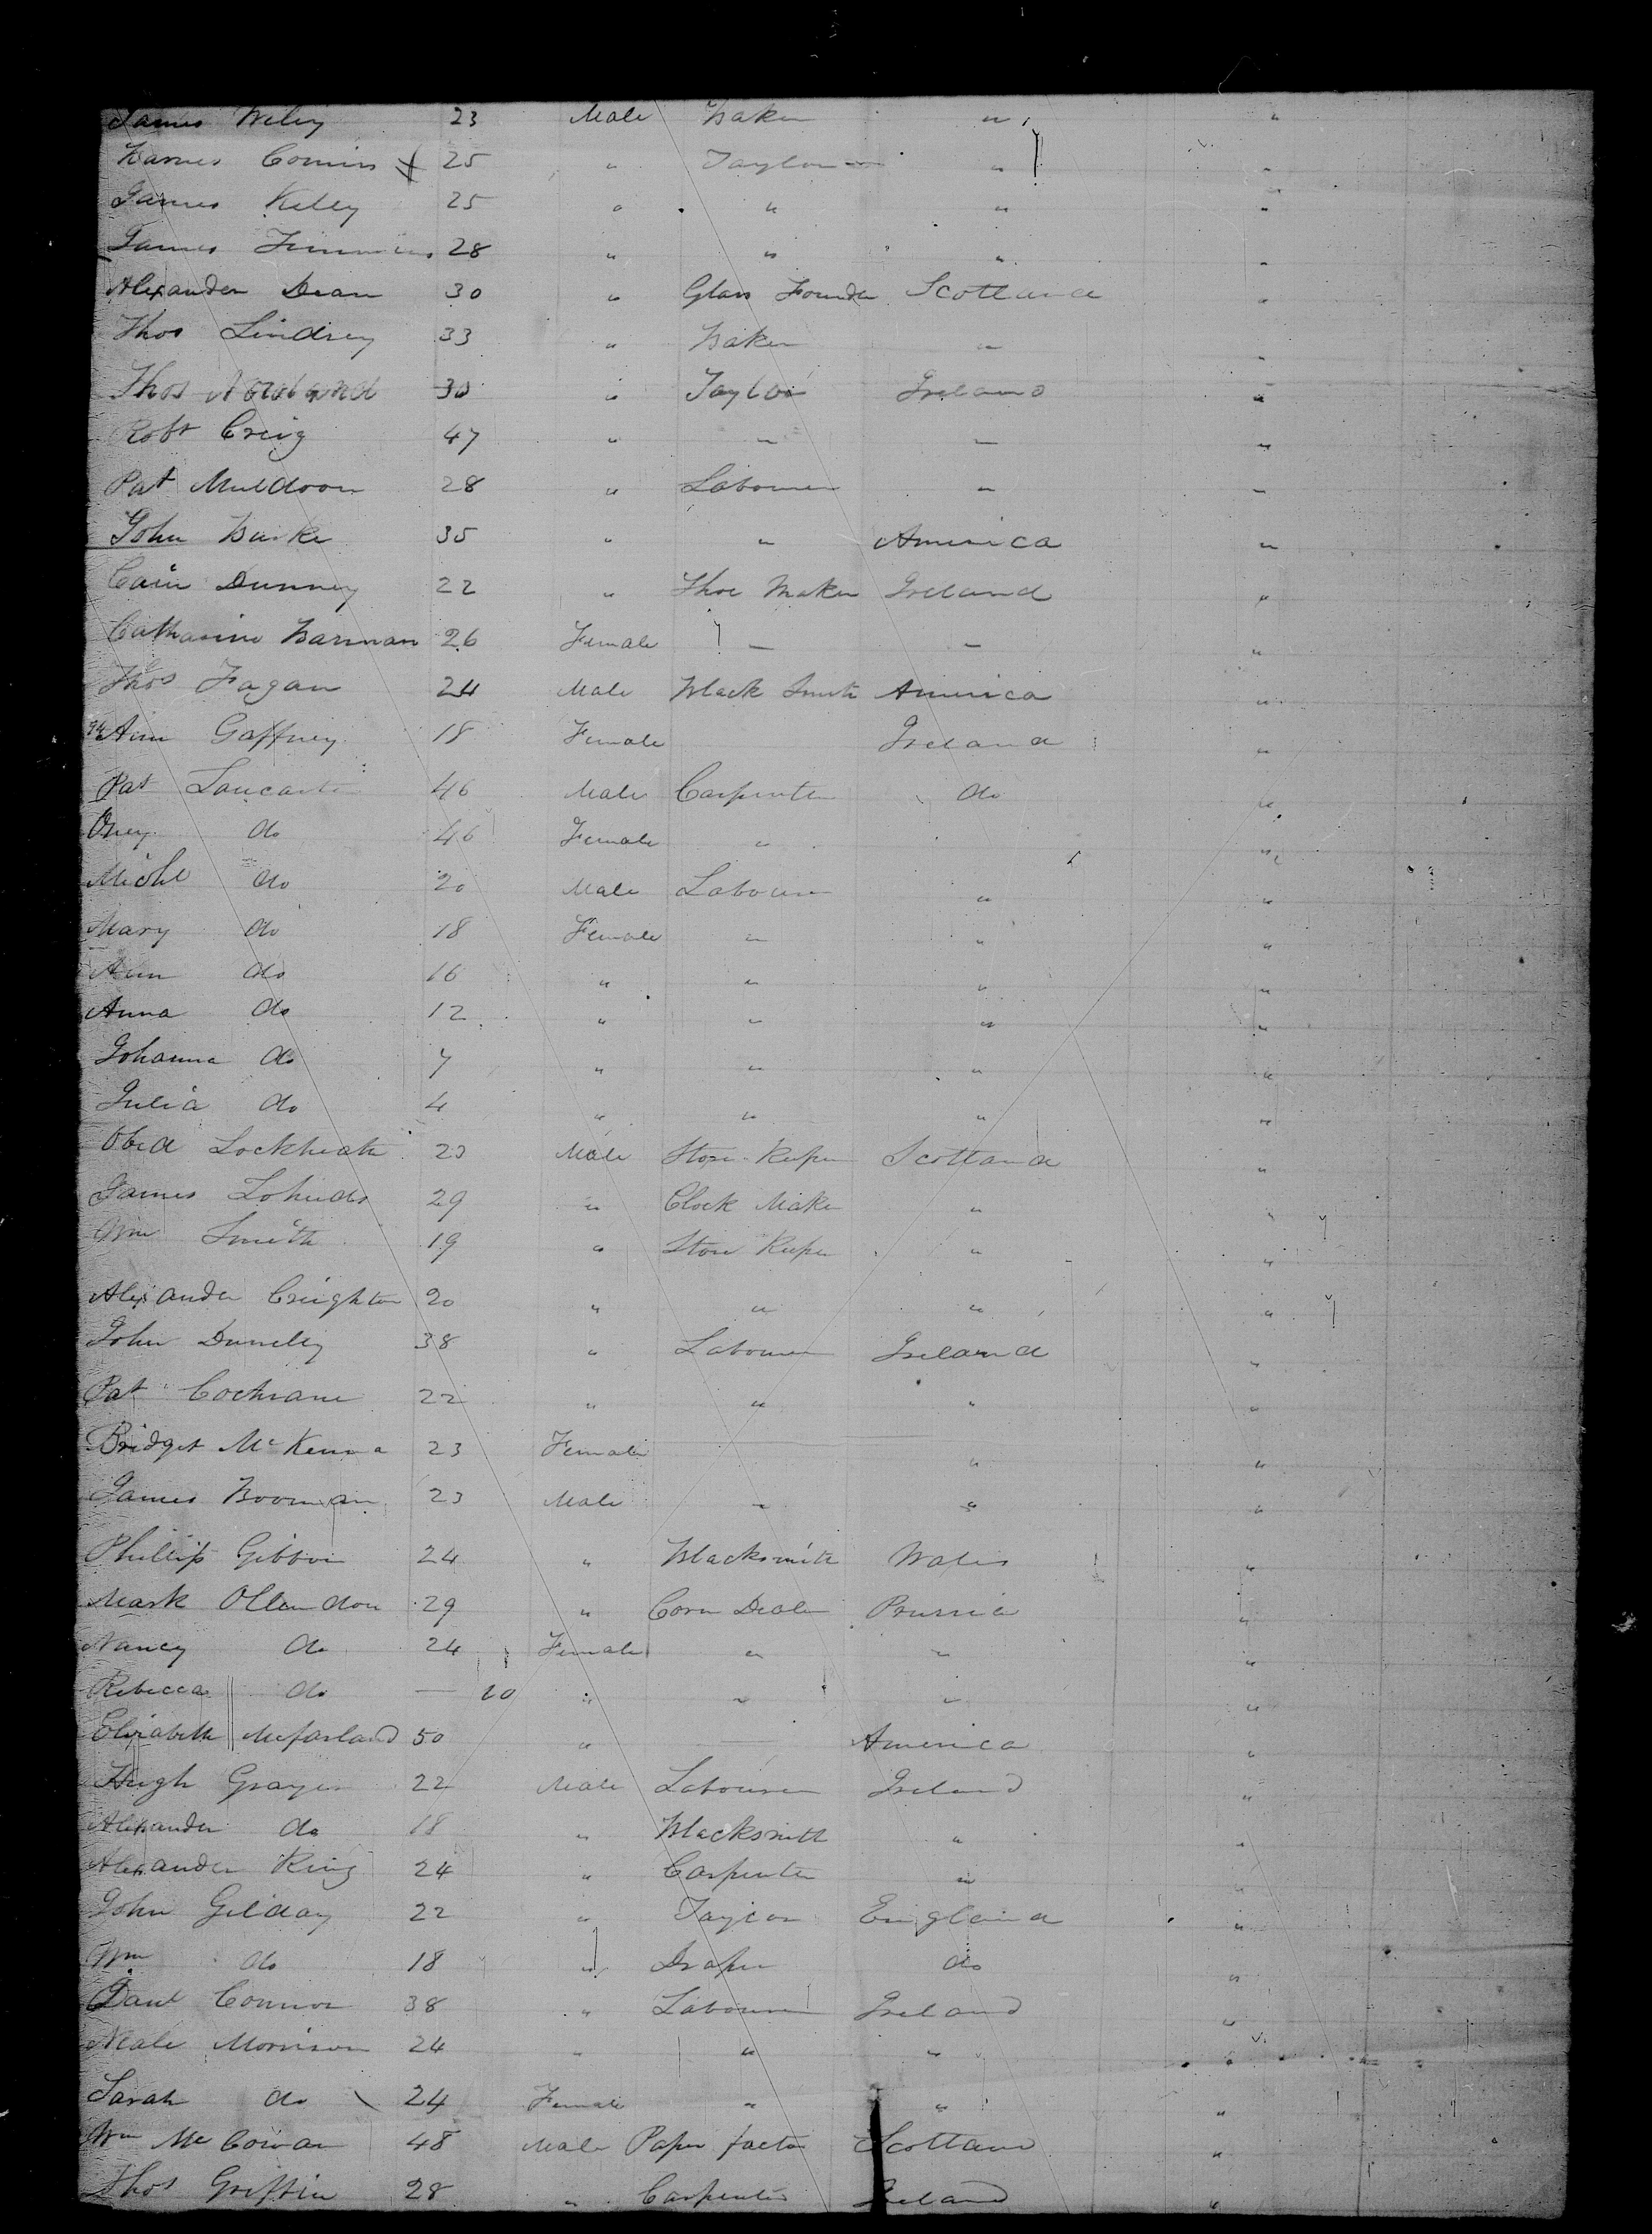 James Wiley 23 Male Baker " "
James Comins 25 " Taylor " "
James Kelly 25 " " " "
James 28 " " " "
Alexander Dean 30 " Glass Founder Scotland "
Thos Lindsey 33 " Baker " "
Thos 30 " Taylor Ireland "
Robt Creig 47 " " " "
Pat Muldoon 28 " Labourer " "
John Burke 35 " " America "
Dunney 22 " Shoe Maker Ireland "
Catharine Barman 26 Female — — "
Thos Fagan 24 Male Black Smith America "
Ann Gaffney 18 Female Ireland "
Pat Lancaster 46 Male Carpenter do "
do 46 Female " "
Michl do 20 Male Labourer " "
Mary do 18 Female " " "
Ann do 16 " " " "
Anna do 12 " " " "
Johanna do 7 " " " "
Julia do 4 " " " "
Obed Lockheath 23 Male Store Keeper Scotland "
James 29 " Clock Maker " "
Wm Smith 19 " Store Keeper " "
Alexander Creighton 20 " " " "
John Dunelly 38 " Labourer Ireland "
Pat Cochrane 22 " " " "
Bridget McKenna 23 Female " "
James Booman 23 Male " " "
Phillip Gibbon 24 " Blacksmith Wales "
Mark Ollendon 29 " Corn Dealer Prussia "
Nancy do 24 Female " " "
Rebecca do — 10 " " " "
Elizabeth Mcfarland 50 " America "
Hugh Grayer 22 Male Labourer Ireland "
Alexander do 18 " Blacksmith " "
Alexander King 24 " Carpenter " "
John Gilday 22 " Taylor England "
Wm do 18 " Draper do "
Danl Connor 38 " Labourer Ireland "
Neale Morrison 24 " " " "
Sarah do 24 Female " " "
Wm McCowan 48 Male Paper factor Scotland "
Thos Griffin 28 " Carpenter Ireland "